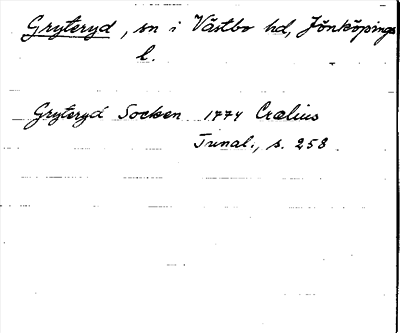 Gryteryd, sn i Västbo hd, Jönköpings
l.
Gryteryd Socken 1774 Crælius
Tunal., s. 253